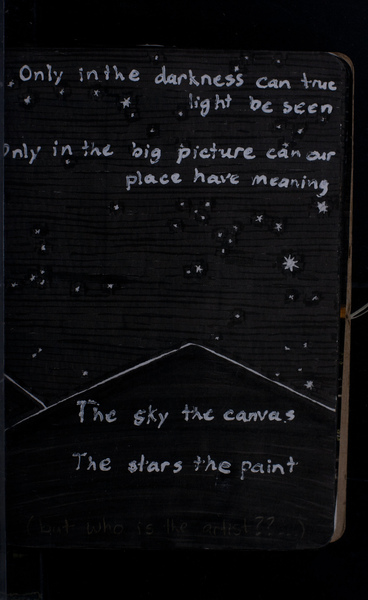 Only in the darkness can true
light be seen
Only in the big picture can our
place have meaning
The sky the canvas
The stars the paint
(but who is the artist??...)